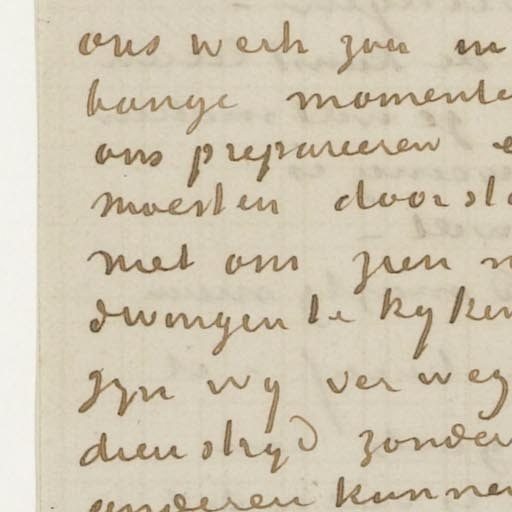 ons werk zou in
bange momente
ons prepareeren e
moesten doorst
met om zien n
dwingen te kyken
zyn wy ver weg
dien stryd zonder
anderen kunnen